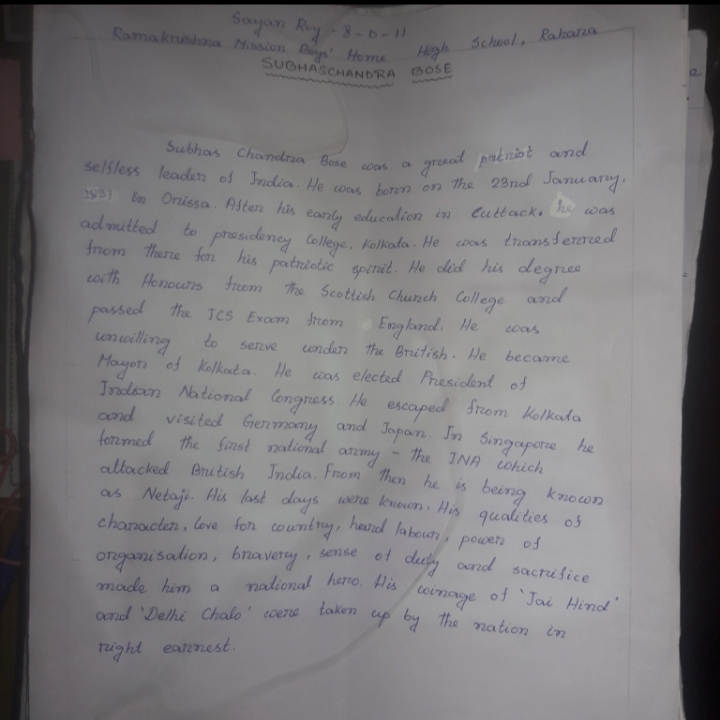 Sayan Roy - 8 - D - 11
Ramakrushna Mission Boys' Home High School, Rahara
SUBHASCHANDRA BOSE
Subhas Chandra Bose was a great patriot and
selfless leader of India. He was born on the 23nd January,
in Orissa. After his early education in Cuttack. he was
admitted to presidency College, Kolkata. He was transferred
from there for his patriotic spirit. He did his degree
with Honours from the Scottish Church College and
passed the ICS Exam from England. He was
unwilling to serve under the British. He became
Mayor of Kolkata. He was elected President of
Indian National Congress. He escaped from Kolkata
and visited Germany and Japan. In Singapore he
formed the first national army - the INA which
attacked British India. From then he is being known
as Netaji. His last days were known. His qualities of
character, love for country, heard labour, power of
organisation, bravery, sense of duty and sacrifice
made him a national hero. His coinage of 'Jai Hind'
and 'Delhi Chalo' were taken up by the nation in
right earnest.